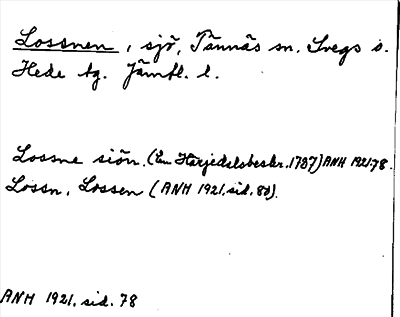 Lossnen, sjö, Tännäs sn. Svegs o.
Hede tg. Jämtl. l.
Lossne siön. (En Härjedalsbeskr. 1787) ANH 1921:78.
Lossn, Lossen (ANH 1921, sid. 80).
ANH 1921, sid. 78